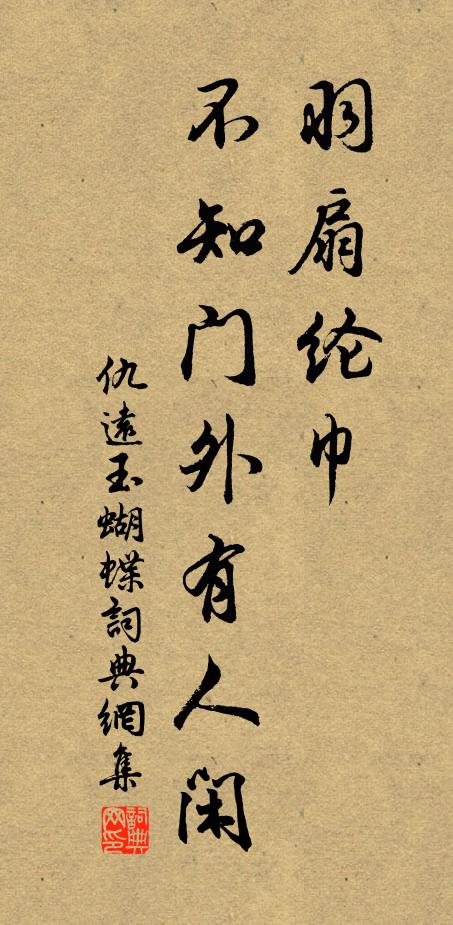 羽扇纶巾
不知门外有人闲
仇遠玉蝴蝶詞典網集
詞典网印